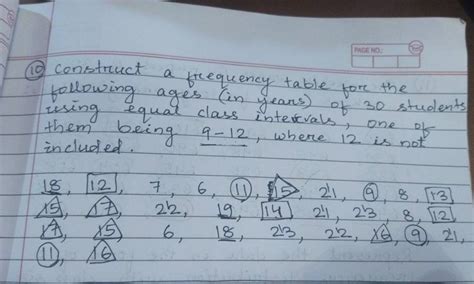 PAGE NO.:
10 Construct a frequency table for the
following ages (in years) of 30 students
using equal class intervals, one of
them being 9-12, where 12 is not
included.
18, 12, 7, 6, 11, 15, 21, 9, 8, 13
15, 17, 22, 19, 14, 21, 23, 8, 12
17, 15, 6, 18, 23, 22, 16, 9, 21,
11, 16